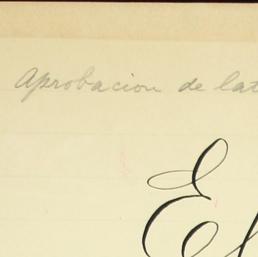 Aprobacion de lat
El